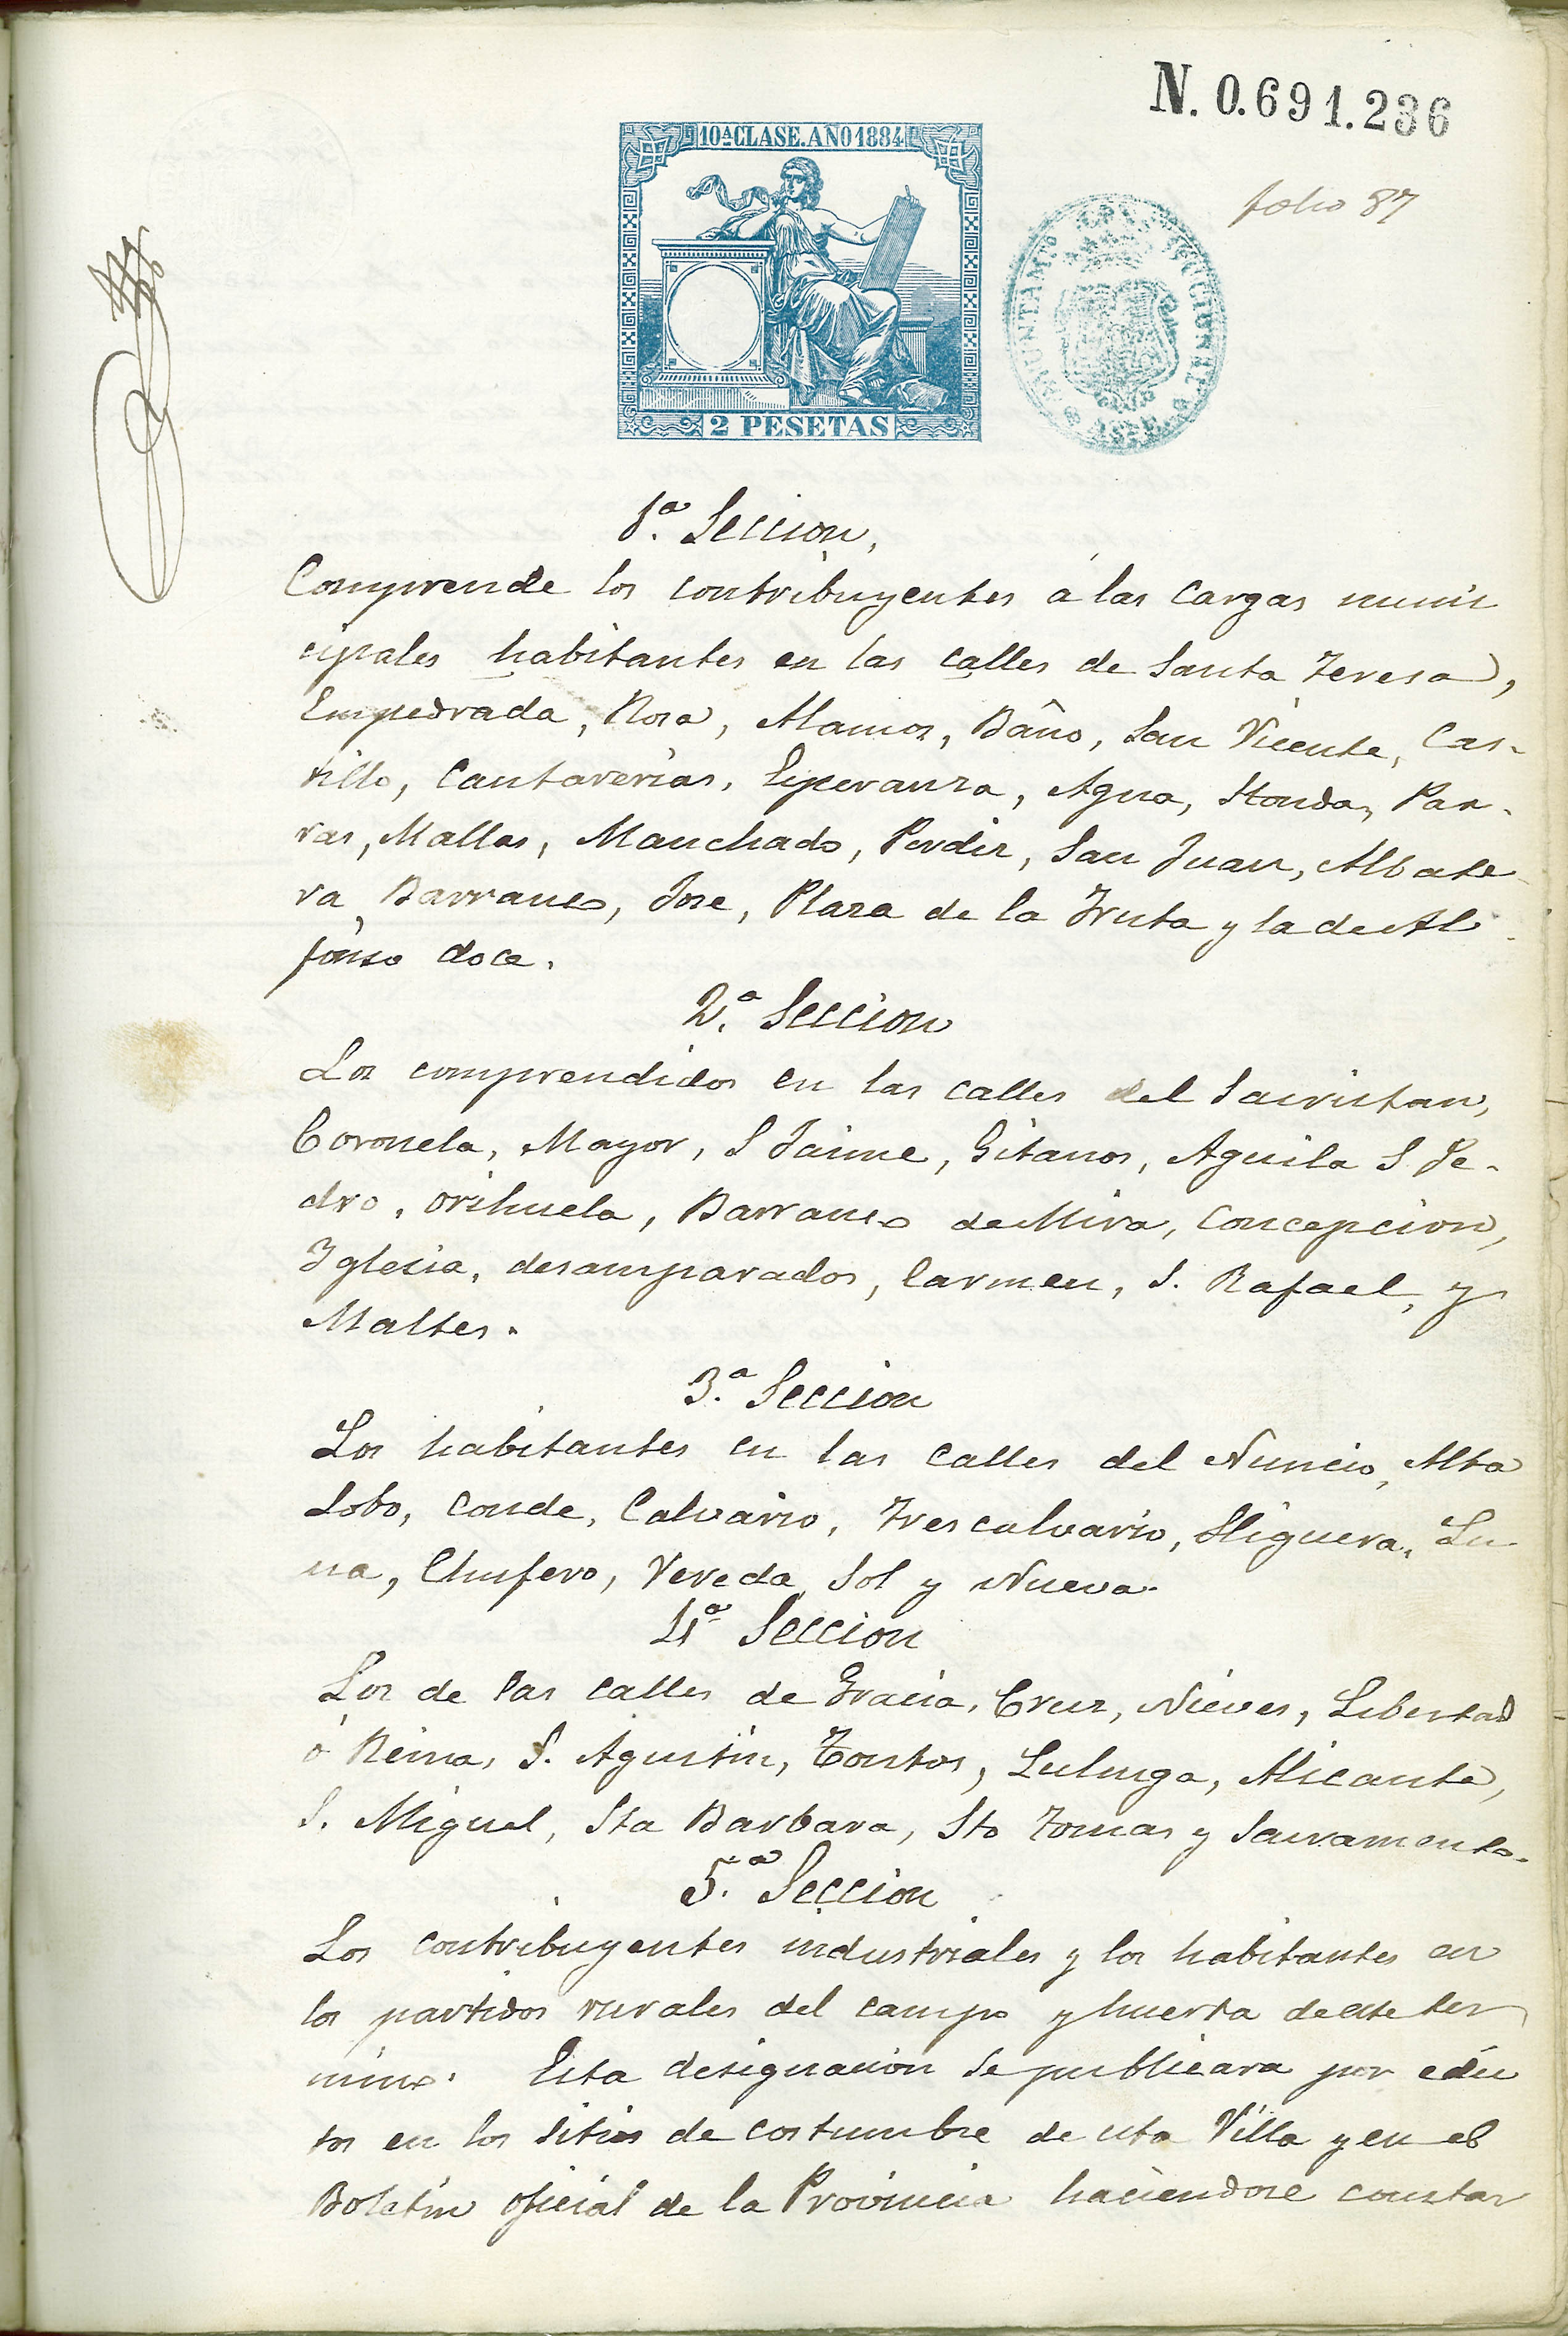 N. 0.691.236
10ª CLASE. AÑO 1884
folio 87
2 PESETAS
1ª. Seccion,
Comprende los contribuyentes á las Cargas muni
cipales habitantes en las calles de Santa Teresa,
Empedrada, Rosa, Alamos, Baño, San Vicente, Cas-
tillo, Cantarerias, Esperanza, Agua, Honda, Par-
ras, Mallas, Manchado, Perdiz, San Juan, Albate
ra, Barranco, Jose, Plaza de la Fruta y la de Al
fonso doce.
2ª. Seccion
Los comprendidos en las calles del Sacristan,
Coronela, Mayor, S Jaime, Gitanos, Aguila S. Pe-
dro, Orihuela, Barranco de Mira, Concepcion,
Iglesia, desamparados, Carmen, S. Rafael, y
Maltes.
3ª. Seccion
Los habitantes en las calles del Nuncio, Alta
Lobo, Conde, Calvario, Trescalvario, Higuera, Lu
na, Chufero, Vereda, Sol y Nueva.
4ª Seccion
Los de las calles de Gracia, Cruz, Nieves, Libertad
ó Reina, S. Agustin, Tontos, Alicante,
S. Miguel, Sta Barbara, Sto Tomas y Sacramento.
5ª. Seccion
Los contribuyentes industriales y los habitantes en
los partidos rurales del campo y huerta de este ter
mino. Esta designacion se publicara por edic
tos en los sitios de costumbre de esta Villa y en el
Boletin oficial de la Provincia haciendose constar